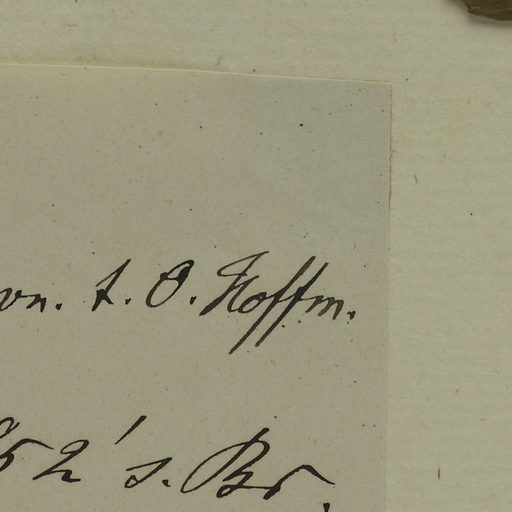 vn. t. O. Hoffm.
52' s. Br.